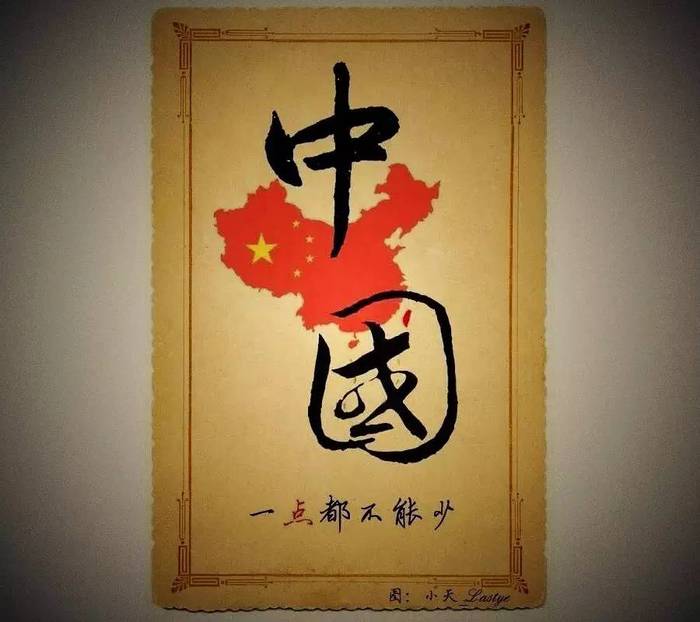 中
國
一点都不能少
图：小天_Lastye